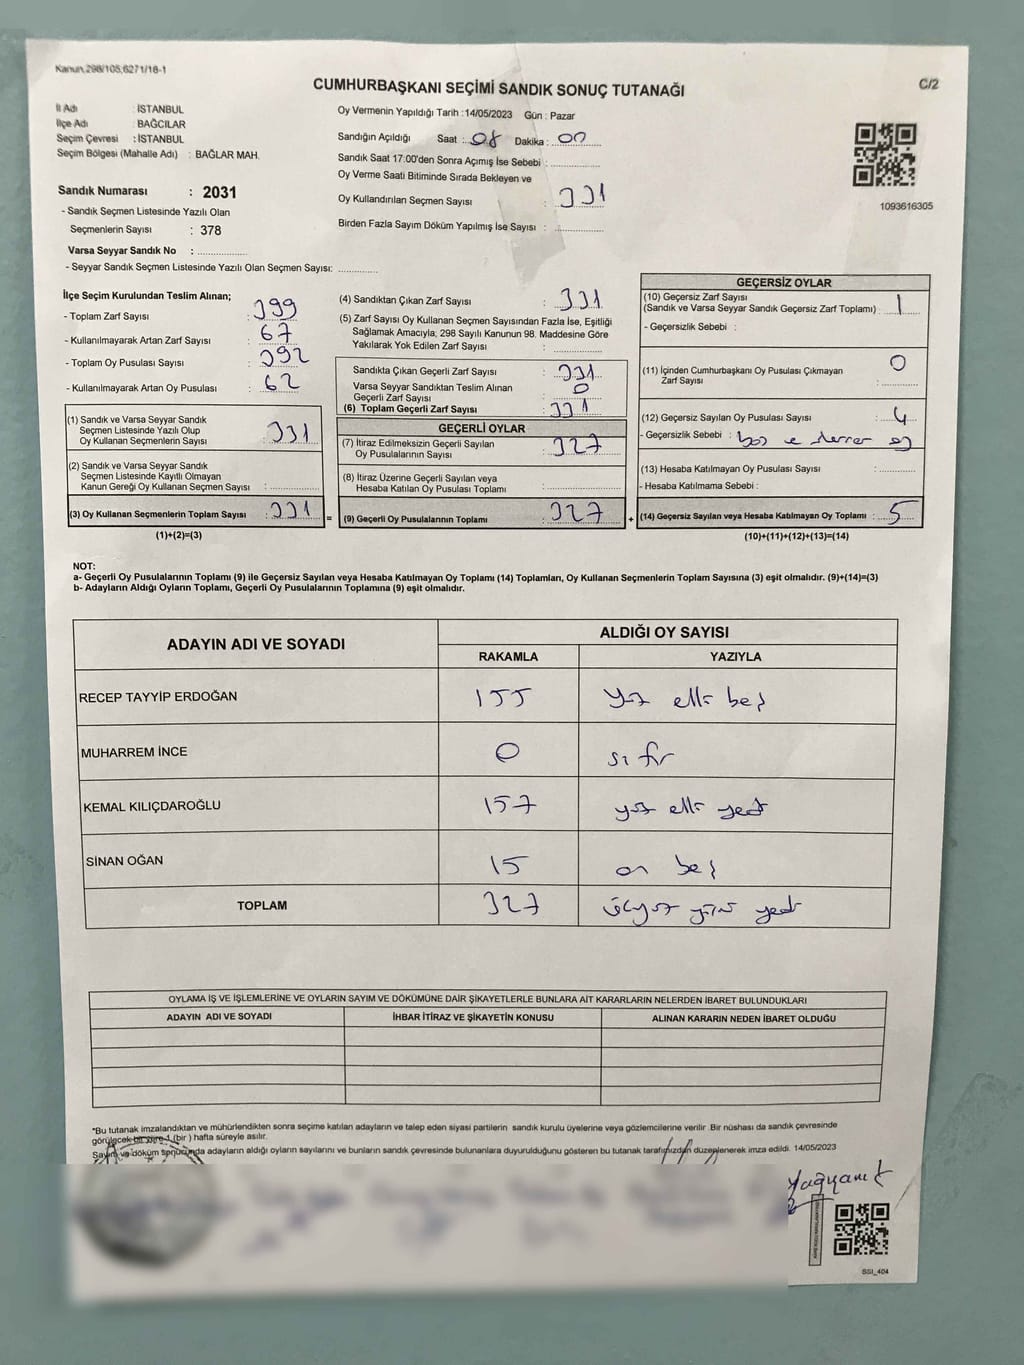 Kanun,298/105;6271/18-1
CUMHURBAŞKANI SEÇİMİ SANDIK SONUÇ TUTANAĞI
C/2
İl Adı : İSTANBUL
İlçe Adı : BAĞCILAR
Seçim Çevresi : İSTANBUL
Seçim Bölgesi (Mahalle Adı) : BAĞLAR MAH.
Sandık Numarası : 2031
- Sandık Seçmen Listesinde Yazılı Olan
Seçmenlerin Sayısı : 378
Varsa Seyyar Sandık No :
- Seyyar Sandık Seçmen Listesinde Yazılı Olan Seçmen Sayısı:
Oy Vermenin Yapıldığı Tarih :14/05/2023 Gün : Pazar
Sandığın Açıldığı Saat : 08 Dakika : 00
Sandık Saat 17:00'den Sonra Açımış İse Sebebi :
Oy Verme Saati Bitiminde Sırada Bekleyen ve
Oy Kullandırılan Seçmen Sayısı : 331
Birden Fazla Sayım Döküm Yapılmış İse Sayısı :
1093616305
İlçe Seçim Kurulundan Teslim Alınan;
- Toplam Zarf Sayısı : 399
- Kullanılmayarak Artan Zarf Sayısı : 67
- Toplam Oy Pusulası Sayısı : 392
- Kullanılmayarak Artan Oy Pusulası : 62
(1) Sandık ve Varsa Seyyar Sandık
Seçmen Listesinde Yazılı Olup
Oy Kullanan Seçmenlerin Sayısı : 331
(2) Sandık ve Varsa Seyyar Sandık
Seçmen Listesinde Kayıtlı Olmayan
Kanun Gereği Oy Kullanan Seçmen Sayısı :
(3) Oy Kullanan Seçmenlerin Toplam Sayısı : 331
(1)+(2)=(3)
=
(4) Sandıktan Çıkan Zarf Sayısı : 331
(5) Zarf Sayısı Oy Kullanan Seçmen Sayısından Fazla İse, Eşitliği
Sağlamak Amacıyla, 298 Sayılı Kanunun 98. Maddesine Göre
Yakılarak Yok Edilen Zarf Sayısı :
Sandıkta Çıkan Geçerli Zarf Sayısı : 331
Varsa Seyyar Sandıktan Teslim Alınan
Geçerli Zarf Sayısı : 0
(6) Toplam Geçerli Zarf Sayısı : 331
GEÇERLİ OYLAR
(7) İtiraz Edilmeksizin Geçerli Sayılan
Oy Pusulalarının Sayısı : 327
(8) İtiraz Üzerine Geçerli Sayılan veya
Hesaba Katılan Oy Pusulası Toplamı :
(9) Geçerli Oy Pusulalarının Toplamı : 327
+
GEÇERSİZ OYLAR
(10) Geçersiz Zarf Sayısı
(Sandık ve Varsa Seyyar Sandık Geçersiz Zarf Toplamı) : 1
- Geçersizlik Sebebi :
(11) İçinden Cumhurbaşkanı Oy Pusulası Çıkmayan
Zarf Sayısı : 0
(12) Geçersiz Sayılan Oy Pusulası Sayısı : 4
- Geçersizlik Sebebi :
(13) Hesaba Katılmayan Oy Pusulası Sayısı :
- Hesaba Katılmama Sebebi :
(14) Geçersiz Sayılan veya Hesaba Katılmayan Oy Toplamı : 5
(10)+(11)+(12)+(13)=(14)
NOT:
a- Geçerli Oy Pusulalarının Toplamı (9) ile Geçersiz Sayılan veya Hesaba Katılmayan Oy Toplamı (14) Toplamları, Oy Kullanan Seçmenlerin Toplam Sayısına (3) eşit olmalıdır. (9)+(14)=(3)
b- Adayların Aldığı Oyların Toplamı, Geçerli Oy Pusulalarının Toplamına (9) eşit olmalıdır.
ADAYIN ADI VE SOYADI ALDIĞI OY SAYISI
RAKAMLA YAZIYLA
RECEP TAYYİP ERDOĞAN 155 yüz elli beş
MUHARREM İNCE 0 sıfır
KEMAL KILIÇDAROĞLU 157 yüz elli yedi
SİNAN OĞAN 15 on beş
TOPLAM 327 üçyüz yirmi yedi
OYLAMA İŞ VE İŞLEMLERİNE VE OYLARIN SAYIM VE DÖKÜMÜNE DAİR ŞİKAYETLERLE BUNLARA AİT KARARLARIN NELERDEN İBARET BULUNDUKLARI
ADAYIN ADI VE SOYADI İHBAR İTİRAZ VE ŞİKAYETİN KONUSU ALINAN KARARIN NEDEN İBARET OLDUĞU
*Bu tutanak imzalandıktan ve mühürlendikten sonra seçime katılan adayların ve talep eden siyasi partilerin sandık kurulu üyelerine veya gözlemcilerine verilir .Bir nüshası da sandık çevresinde
görülecek bir yere 1 (bir ) hafta süreyle asılır.
Sayım ve döküm sonucunda adayların aldığı oyların sayılarını ve bunların sandık çevresinde bulunanlara duyurulduğunu gösteren bu tutanak tarafımızdan düzenlenerek imza edildi. 14/05/2023
SSI_404